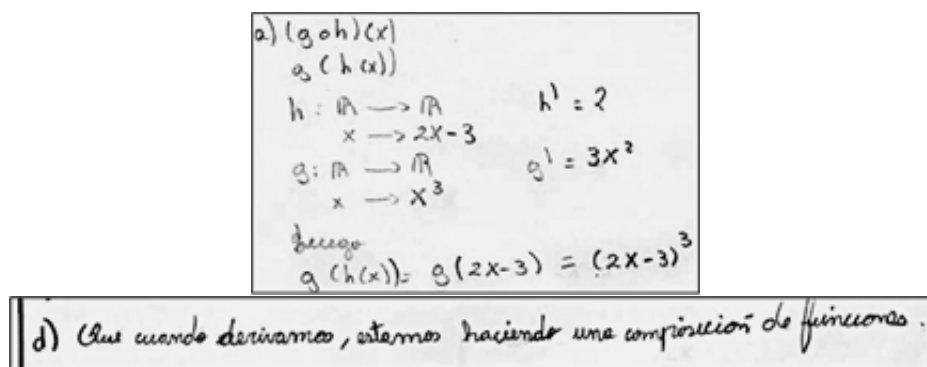 a) (g o h)(x)
g (h(x))
h : ℝ → ℝ h' = 2
x → 2x-3
g : ℝ → ℝ g' = 3x²
x → x³
Luego
g(h(x)) = g(2x-3) = (2x-3)³
d) Que cuando derivamos, estamos haciendo una composición de funciones.